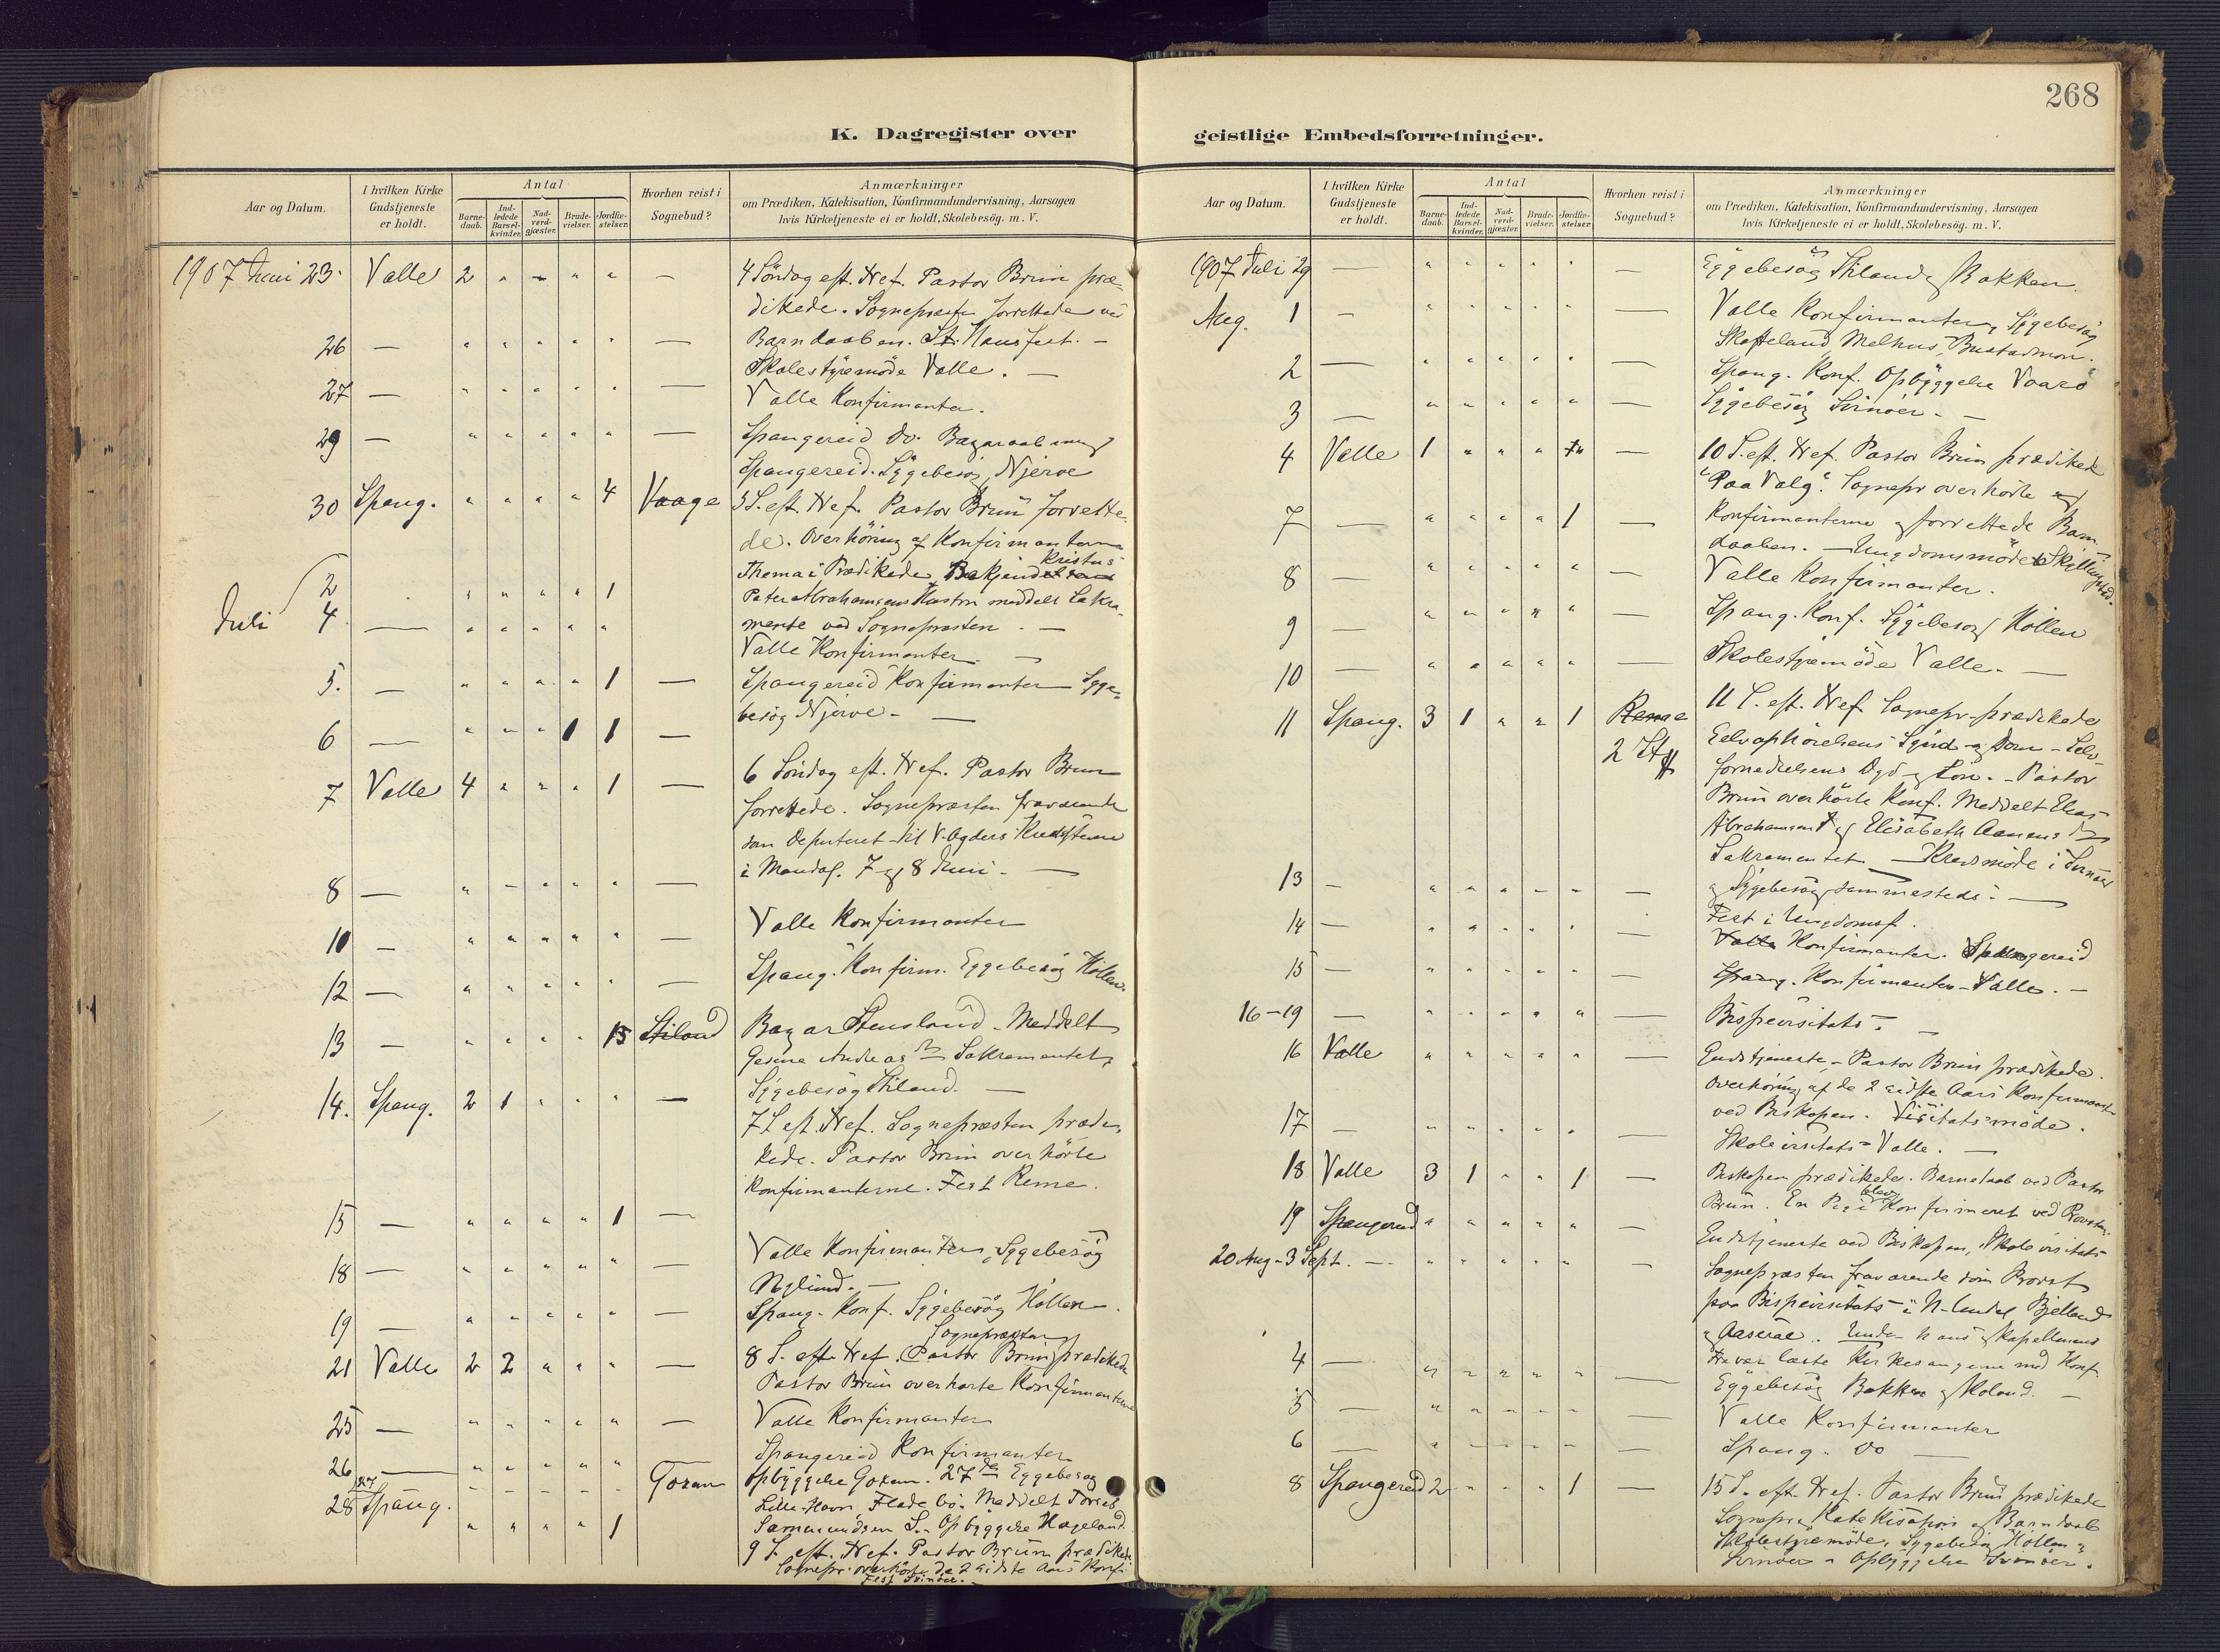 268
K. Dagregister over
geistlige Embedsforretninger.
Aar og Datum.
I hvilken Kirke Gudstjeneste er holdt.
Antal
Barne-daab.
Ind-ledede Barsel-kvinder.
Nad-verd-gjæster.
Brude-vielser.
Jordfæ-stelser.
Hvorhen reist i Sognebud?
Anmærkninger
om Prædiken, Katekisation, Konfirmandundervisning, Aarsagen
hvis Kirketjeneste ei er holdt, Skolebesög. m. V.
1907 Juni 23. Valle 2 " " " " — 4 Söndag eft. Tref. Pastor Brun præ-
dikede. Sognepræsten forrettede ved
Barndaaben. St. Hansfest. —
26 — " " " " " — Skolestyremöde Valle. —
27 — " " " " " — Valle Konfirmanter.
29 — " " " " " — Spangereid do.
Spangereid. Sygebesög Njerve
30 Spang. " " " " 4 Vaage 5 S. eft. Tref. Pastor Brun forrette-
de. Overhöring af Konfirmanterne
Thema i Prædikede Kristus
Juli 2 " " " " 1
mente ved Sognepræsten. —
4 — " " " " " Valle Konfirmanter. —
5. — " " " " 1 — Spangereid Konfirmanter Syge-
besög Njerve — —
6 — " " " 1 1 —
7 Valle 4 " " " 1 — 6 Söndag eft. Tref. Pastor Brun
forrettede. Sognepræsten fraværende
som Deputeret til V. Agders
i Mandal. 7 og 8 Juni. —
8 — " " " " " — Valle Konfirmanter
10 — " " " " " — Spang. Konfirm. Sygebesög Höllen.
12 — " " " " " —
13 — " " " " 15 Stiland Bazar Stensland. Meddelt
Gesine Andreas Sakramentet,
Sygebesög Stiland. —
14. Spang. 2 1 " " " — 7 S. eft. Tref. Sognepræsten prædi-
kede. Pastor Brun overhörte
Konfirmanterne. Fest Reme.
15 — " " " " 1 — Valle Konfirmanter, Sygebesög
18 — " " " " " —
19 — " " " " " — Spang. Konf. Sygebesög Höllen.
Sognepræsten
21 Valle 2 2 " " " — 8 S. eft. Tref. Pastor Brun prædikede
Pastor Brun overhörte Konfirmanterne
25 — " " " " " — Valle Konfirmanter
26 — " " " " " Spangereid Konfirmanter
27 " " " " " Gozan Opbyggelse Gozan. 27de Sygebesög
Lille-Havn, Meddelt
S. Opbyggelse Hageland.
28 Spang. " " " " 1 9 S. eft. Tref. Pastor Brun prædikede
Sognepr. overhörte de 2 sidste Aars Konfi
Fest Svinöer. —
1907 Juli 29 — " " " " " — Sygebesög Stiland og Bakken.
Aug. 1 — " " " " " — Valle Konfirmanter, Sygebesög
Skofteland, Melhus, Bustadmon.
2 — " " " " " — Spang. Konf. Opbyggelse Vaarö
3 — " " " " " — Sygebesög Svinöer. —
4 Valle 1 " " " — 10 S. eft. Tref. Pastor Brun prædikede
"Paa Valg". Sognepr overhörte og
Konfirmanterne og forrettede Barn
daaben. — Ungdomsmöde
7 — " " " " 1 —
8 — " " " " " — Valle Konfirmanter.
9 — " " " " " — Spang. Konf. Sygebesög Höllen
10 — " " " " " — Skolestyremöde Valle. —
11 Spang. 3 1 " " 1 Reme 11 S. eft. Tref. Sognepr. prædikede
2
Selvophöielsens Synd og Dom - Selv-
fornedrelsens Dyd og Lön. - Pastor
Brun overhörte Konf. Meddelt
Abrahamsen og Elisabeth
Sakramentet. — Kredsmöde i Svinöer
13 — " " " " " — og Sygebesög sammesteds. —
Fest i Ungdomsf.
14 — " " " " " — Valle Konfirmanter. Spangereid
15 — " " " " " — Spang. Konfirmanter - Valle. —
16-19 — " " " " " — Bispevisitats. —
16 Valle " " " " " — Gudstjeneste, - Pastor Brun prædikede.
Overhöring af de 2 sidste Aars Konfirmanter
ved Biskopen. Visitatsmöde.
17 — " " " " " — Skolevisitats - Valle. —
18 Valle 3 1 " " 1 — Biskopen prædikede. Barnedaab ved Pastor
Brun. En Pige blev Konfirmeret ved Provsten.
19 Spangereid " " " " " — Gudstjeneste ved Biskopen, Skolevisitats
20 Aug-3 Sept. — " " " " " — Sognepræsten fraværende som Provst
paa Bispevisitats i N-Undal Bjelland
og Aaseral. Under hans og Kapellanens
Fravær læste Kirkesangerne med Konf.
4 — " " " " " — Sygebesög Bakken og Skoland. —
5 — " " " " " — Valle Konfirmanter
6 — " " " " " — Spang. do —
8 Spangereid 2 " " " 1 — 15 S. eft. Tref. Pastor Brun prædikede
Sognepr. Katekisation og Barndaab
Skolestyremöde, Sygebesög Höllen
Svinöer - Opbyggelse Svinöer.